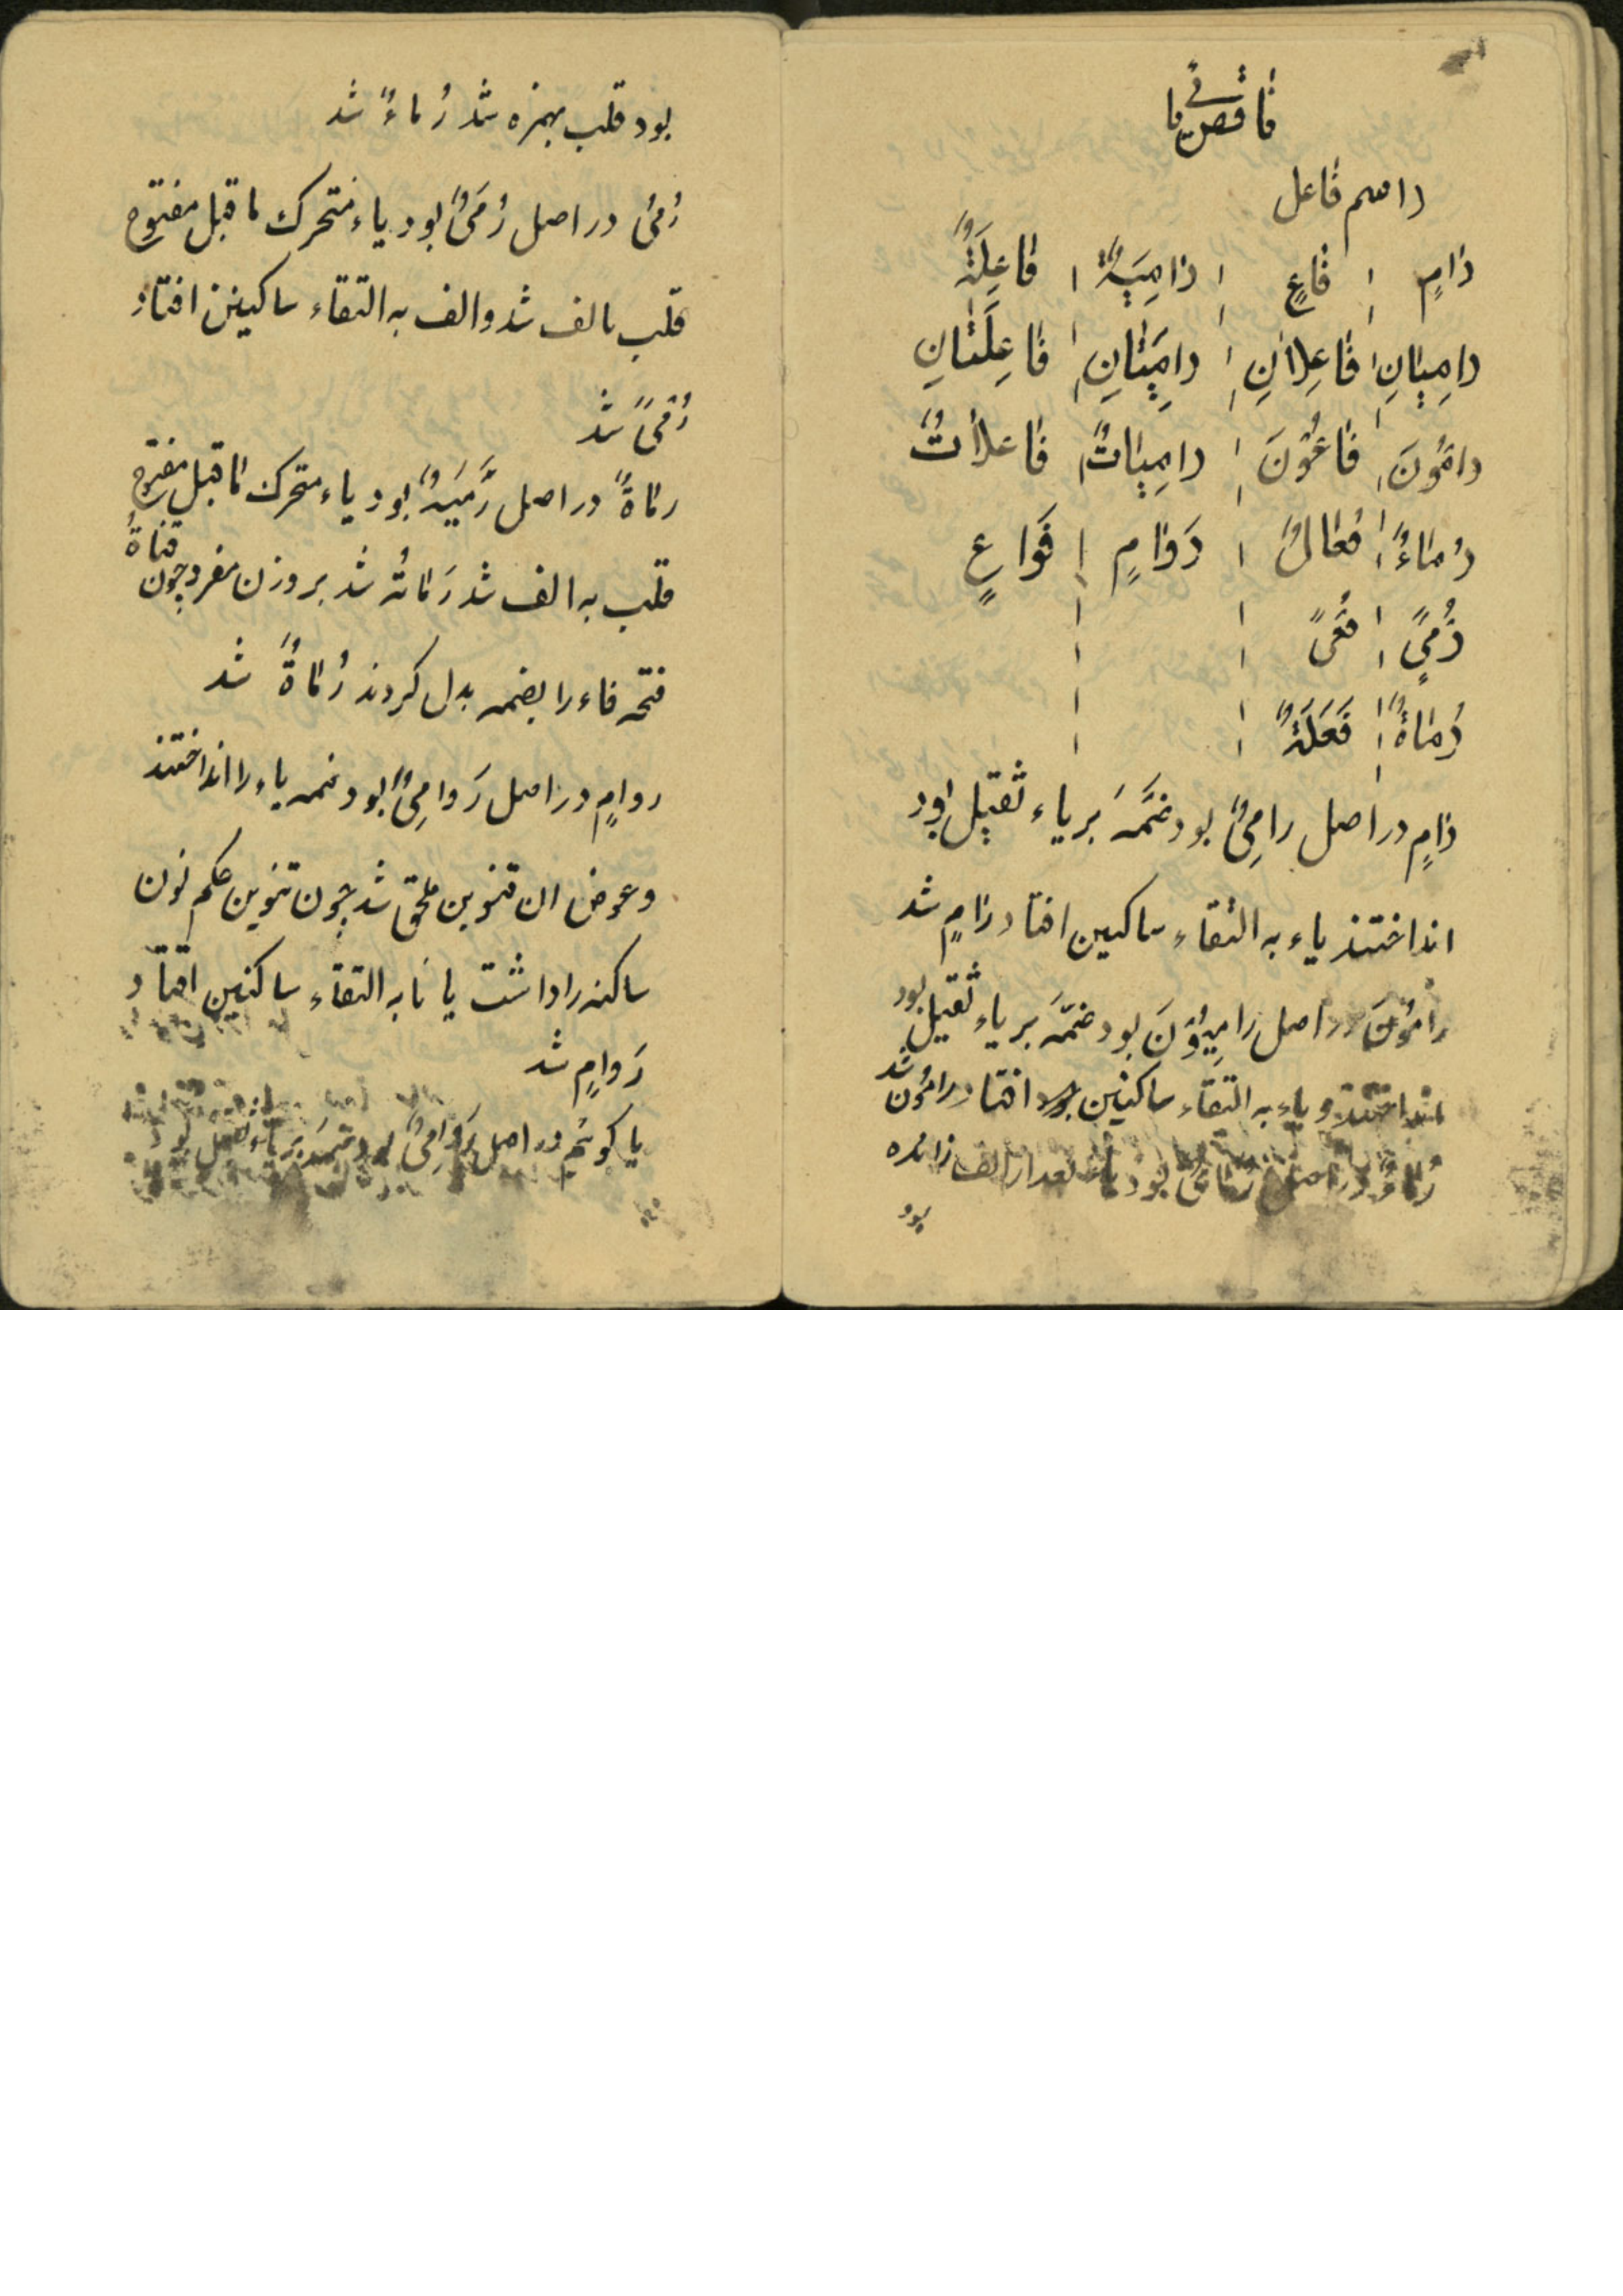 ناقص یا
را اسم فاعل
رٰامٍ فٰاعٍ رٰامِیَةٌ فٰاعِلَةٌ
رامِیٰانِ فٰاعِلاٰنِ رامِیَتٰانِ فٰاعِلَتٰانِ
رامُونَ فٰاعُونَ رامِیٰاتٌ فٰاعلاٰتٌ
رُمٰاءٌ فُعّالٌ رَوٰامٍ فَوٰاعٍ
رُمیً فُعیً
رُمٰاةٌ فَعَلَةٌ
رٰامٍ در اصل رامِیٌ بود ضمَّهَ بر یاء ثقیل بود
انداختند یاء به التقاء ساکنین افتاد رٰامٍ شد
رامُونَ در اصل رامِیُوْنَ بود ضمّهَ بر یاء ثقیل بود
انداختند و یاء به التقاء ساکنین افتاد رامُون شد
رُمّاءٌ در اصل رُمّایٌ بود یاء بعد از الف زائده
بود
بود قلب بهمزه شد رُماءٌ شد
رُمیً در اصل رُمَیٌ بود یاء متحرک ماقبل مفتوح
قلب بالف شد و الف به التقاء ساکنین افتاد
رُمیً شد
رماةٌ در اصل رَمَیَةٌ بود یاء متحرک ماقبل مفتوح
قلب به الف شد رَماتٌ شد بر وزن مفرد چون قناةٌ
فتحه فاء را بضمه بدل کردند رُماةٌ شد
روامٍ در اصل رَوامِیٌ بود ضمه یاء را انداختند
و عوض ان تنوین ملحق شد چون تنوین حکم نون
ساکنه را داشت یا نا به التقاء ساکنین افتاد
رَوامٍ شد
یا کوئیم در اصل رَوَامِیٌ بود ضمهَ بر یاء ثقیل بود